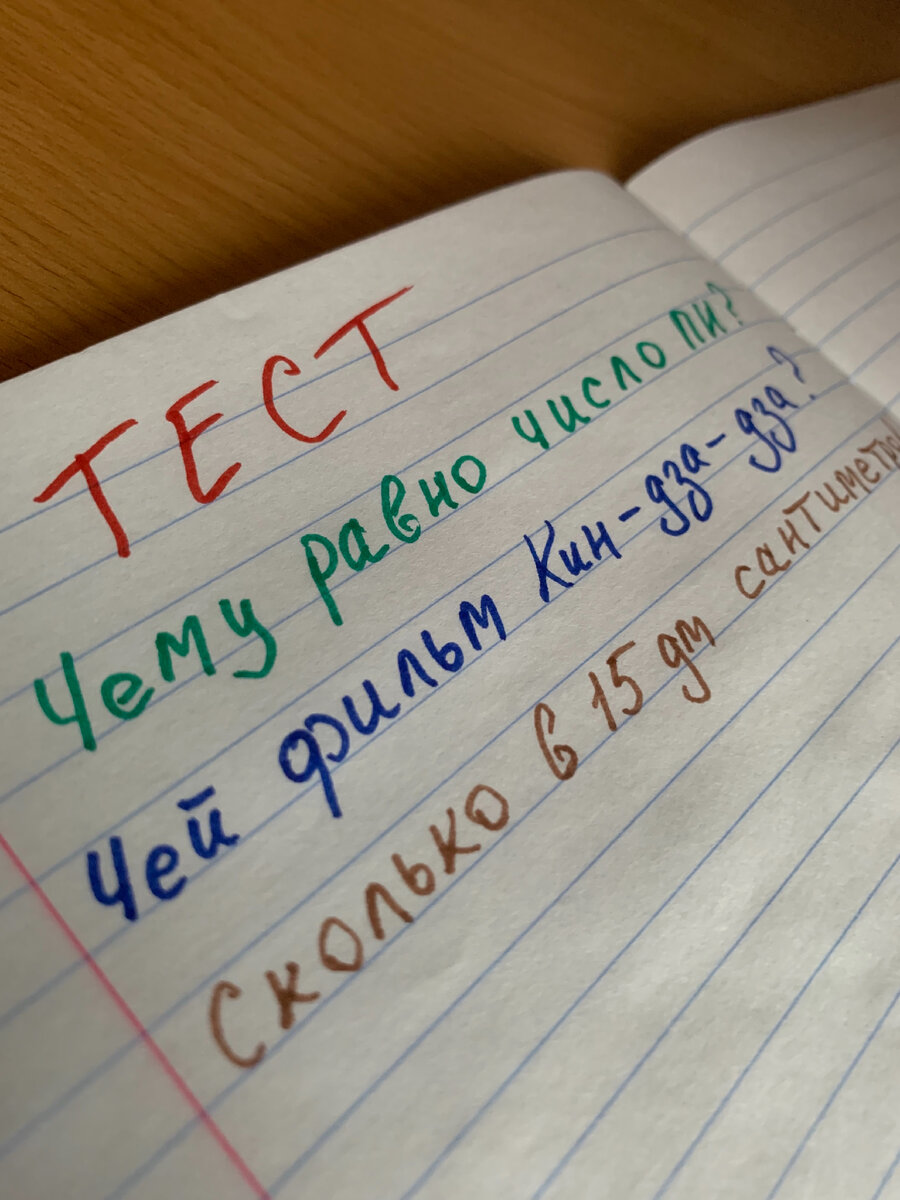 ТЕСТ
Чему равно число пи?
Чей фильм Кин-дза-дза?
Сколько в 15 дм